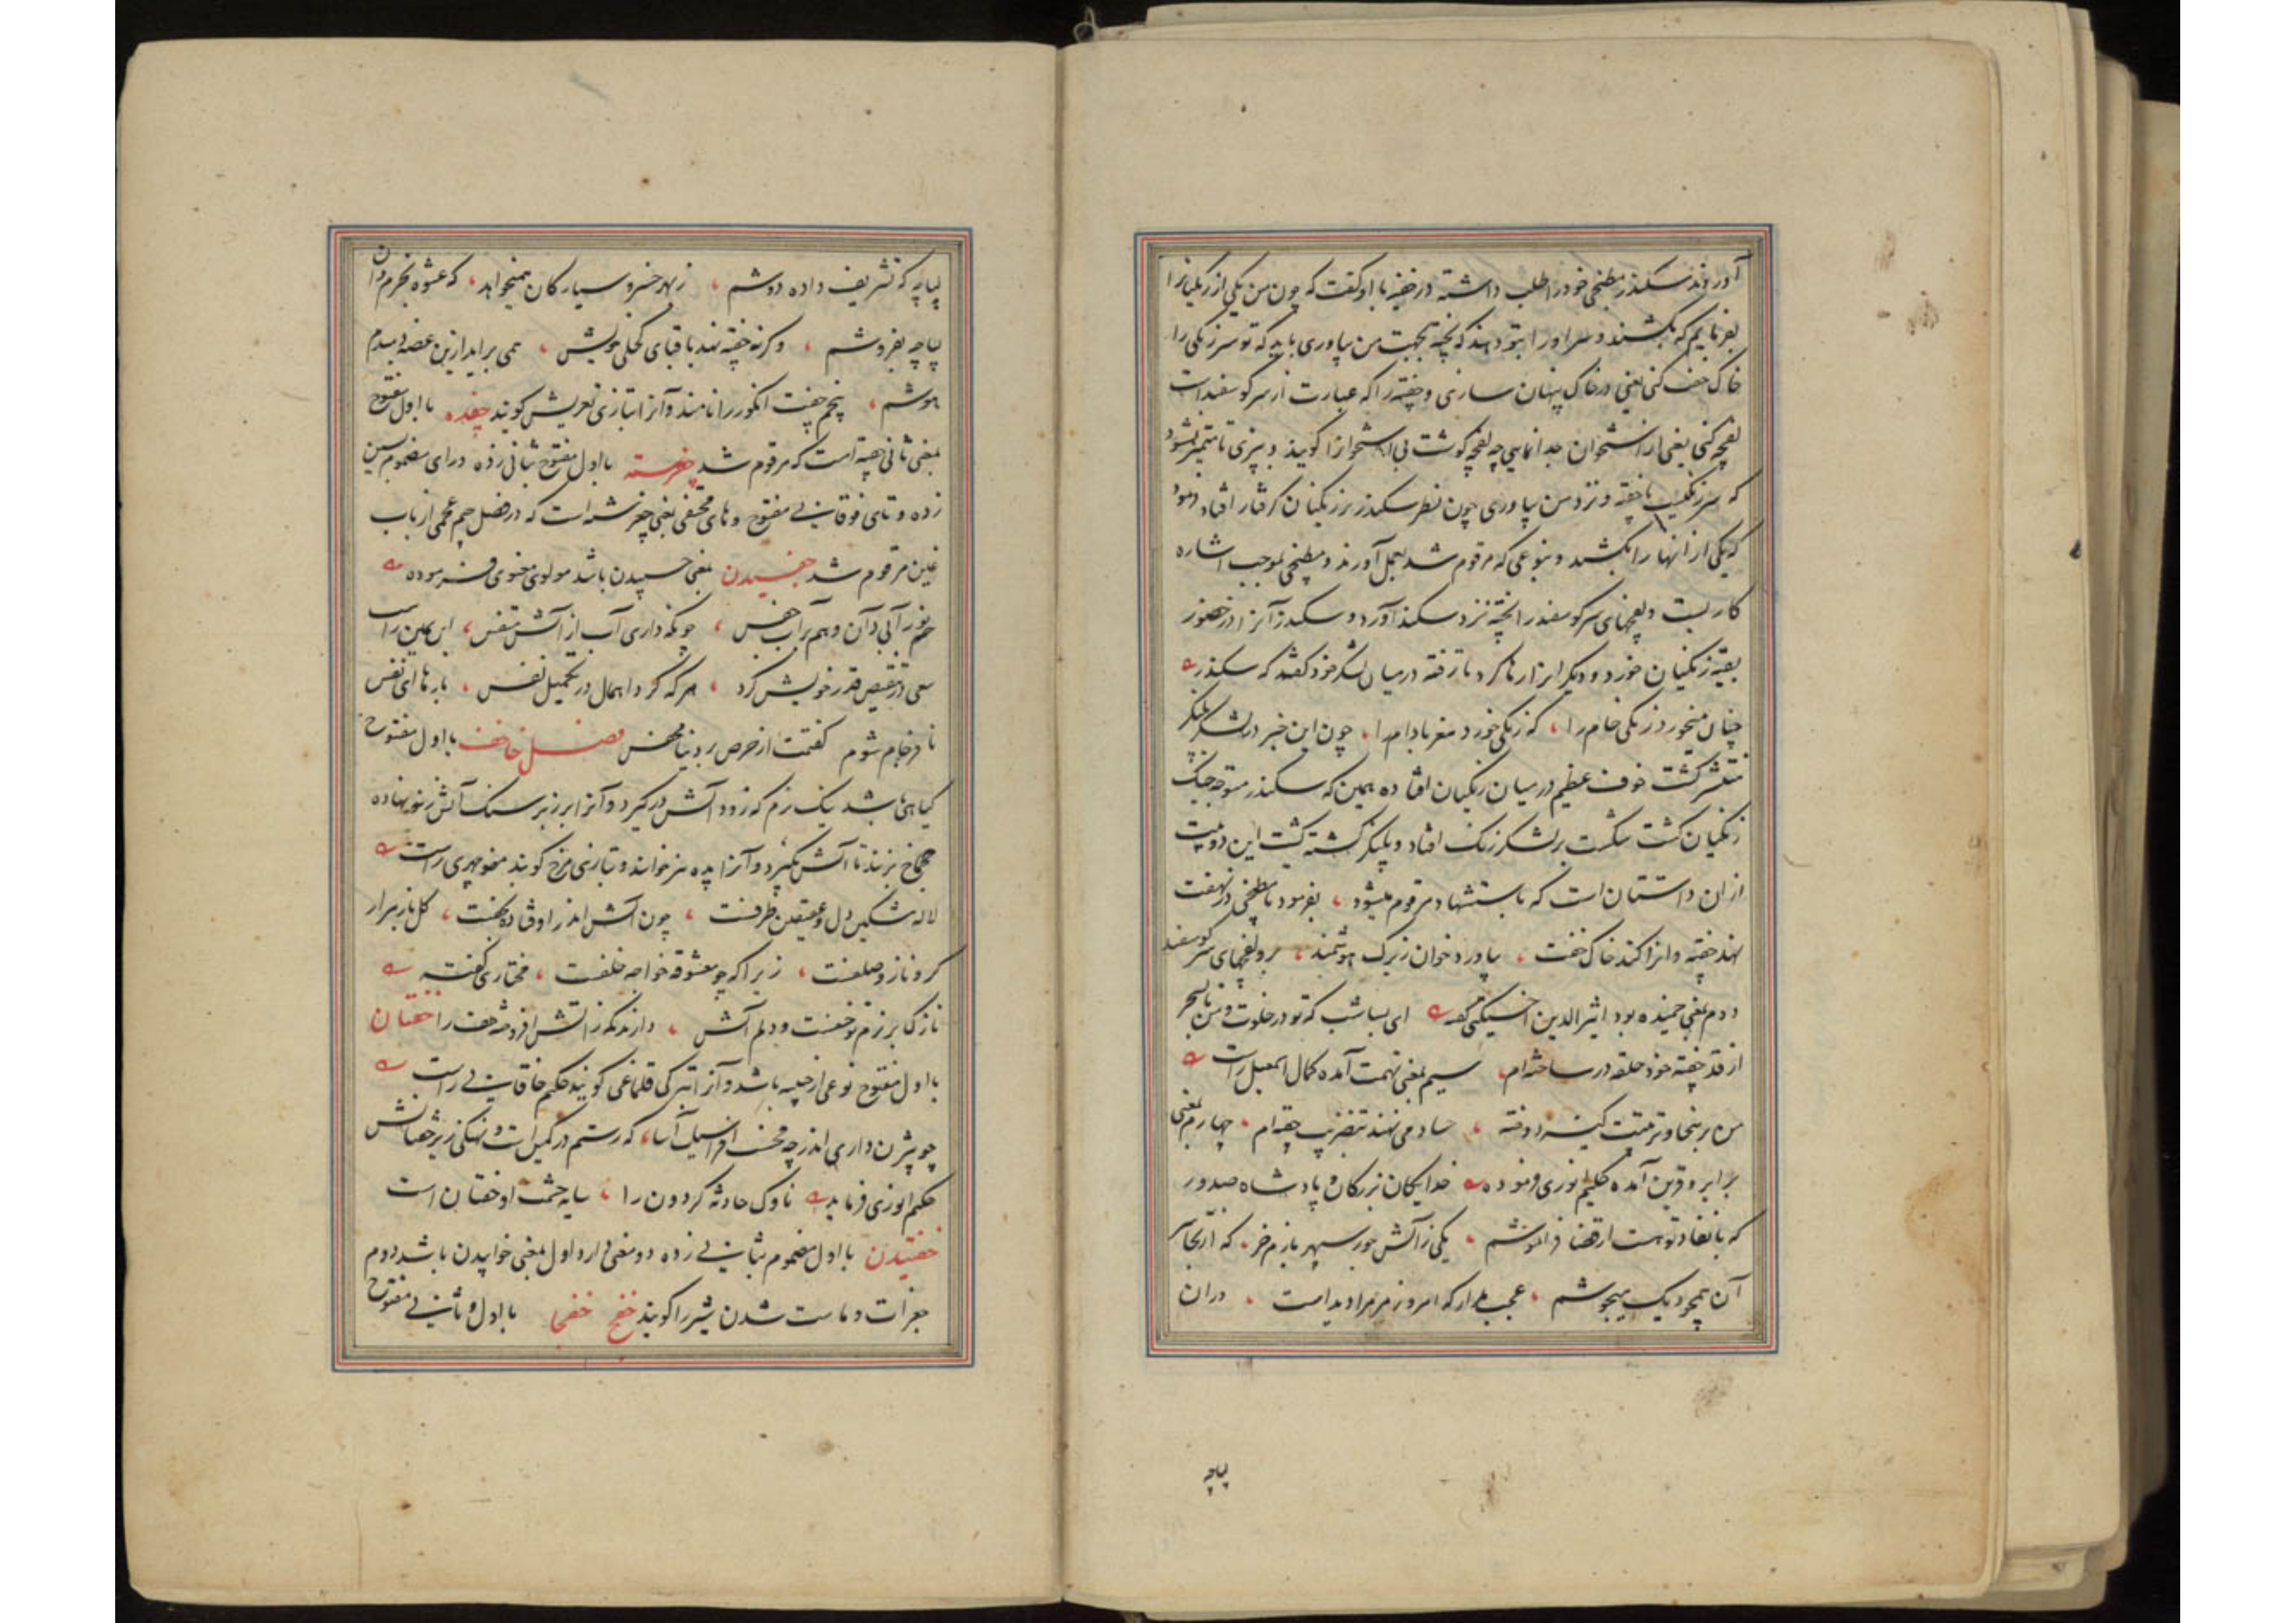 آوردند سکندر مطبخی خود را طلب داشته در خفیه با او گفت که چون من یکی از زنگیانرا
بفرمایم که بکشند و سر او را بتو دهند که پخته بجهت من بیاوری باید که تو سر زنگی را
خاک خفت کنی یعنی در خاک پنهان سازی و چفته را که عبارت از سر کوسفند است
لفچه کنی یعنی از استخوان جدا نمایی چه لفچه کوشت بی استخوانرا کویند و بپزی تا متمیز نشود
که سر زنگیست یا چفته و نزد من بیاوری چون نظر سکندر بر زنگیان کرفتار افتاد فرمود
که یکی از آنها را بکشند و بنوعی که مرقوم شد بعمل آورند و مطبخی بموجب اشاره
کار بست و لفچهای سر کوسفند را پخته نزد سکندر آورد و سکندر آنرا در حضور
بقیه زنگیان خورد و دیگرانرا رها کرد تا رفته در میان لشکر خود گفتند که سکندر
چنان میخورد زنگی خام را، که زنگی خورد مغز بادام را، چون این خبر در لشکر پلنگر
منتشر کشت خوف عظیم در میان زنگیان افتاده همین که سکندر متوجه جنگ
زنگیان کشت شکست بر لشکر زنگ افتاد و پلنگر کشته گشت این دو بیت
از ان داستان است که باستشهاد مرقوم میشود، بفرمود تا مطبخی در نهفت
نهد چفته و انرا کند خاک خفت، بیاورد خوان زیرک هوشمند، برو لفچهای سر کوسفند
دوم بمعنی خمیده بود اثیر الدین اخسیکتی گفته ای بسا شب که تو در خلوت و من تا بسحر
از قد چفته خود حلقه در ساخته‌ام، سیم بمعنی تهمت آمده کمال اسمعیل راست
من بر نخا و تربیت کیسه دوخته، حساد می نهند تضریب چفته‌ام، چهارم بمعنی
برابر و قرین آمده حکیم انوری فرموده خدایگان بزرگان و پادشاه صدور
که با نفاذ تو هست از قضا فراموشم، یکی ز آتش جور سپهر بازم خر، که از تجاسر
آن همچو دیک میجوشم، عجب مدار که امروز مر مرا دیدست، دران
لباچه
لباچه که تشریف داده دوشم، ز بهر خسرو سیارکان همیخواهد، که عشوه بخرم و ان
لباچه بفروشم، وکرنه خفته نهد با قبای کحلی خویش، همی براید ازین غصه دمبدم
هوشم، پنجم چفت انکور را نامند و آنرا بتازی تعریش کویند چفده با اول مفتوح
بمعنی ثانی چفته است که مرقوم شد چفرسته با اول مفتوح بثانی زده و رای مضموم بسین
زده و تای فوقانی مفتوح و های مختفی بمعنی چغرشته است که در فصل جیم عجمی از باب
غین مرقوم شد چفسیدن بمعنی چسپیدن باشد مولوی معنوی فرموده
خم نور آبی دان و هم بر آب چفس، چونکه داری آب از آتش متفس، ابن یمین راست
سعی در تنقیص قدر خویش کرد، هر که کرد اهمال در تکمیل نفس، بارها ای نفس
نافرجام شوم کفتمت از حرص بر دنیا مچفس فصل خا خف با اول مفتوح
کیاهی باشد نیک نرم که زود آتش درگیرد و آنرا بر زبر سنگ آتش زنه نهاده
چخماخ بزنند تا آتش بگیرد و آنرا پده نیز خوانند و بتازی مرخ کویند منوچهری راست
لاله مشکین دل و عقیقین طرفست، چون آتش اندر اوفتاده بخفت، کل باز مرار
کر و ناز و صلفت، زیرا که چو معشوقه خواجه خلفت، مختاری کفته
نازک بر زم تو خفست و دلم آتش، دارند نکه ز آتش افروخته خف را خفتان
با اول مفتوح نوعی از جبه باشد و آنرا بترکی قلماغی کویند حکیم خاقانی راست
چو بیژن داری اندر چه مخسب افراسیاب آسا، که رستم در کمین است و نهنگی زیر خفتانش
حکیم انوری فرماید ناوک حادثه کردون را، سایه حشمت او خفتان است
خفتیدن با اول مضموم بثانی زده دو معنی دارد اول بمعنی خوابیدن باشد دوم
جغرات و ماست شدن شیر را کویند خفج خفجا با اول و ثانی مفتوح